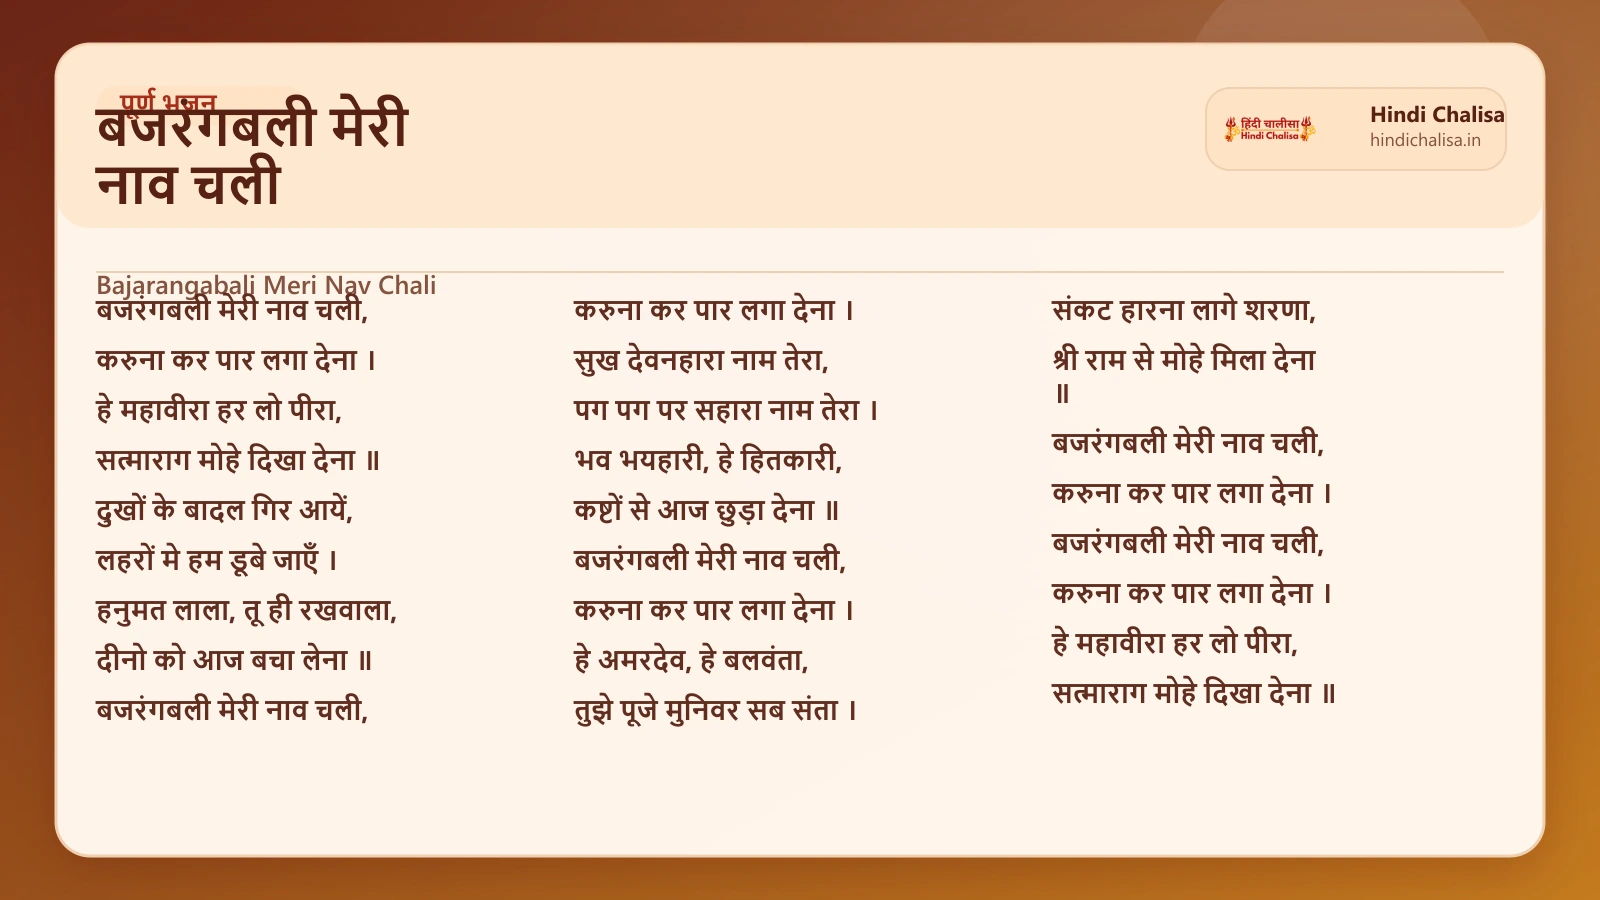 पूर्ण भजन
बजरंगबली मेरी
नाव चली
हिंदी चालीसा
Hindi Chalisa
Hindi Chalisa
hindichalisa.in
Bajarangabali Meri Nav Chali
बजरंगबली मेरी नाव चली,
करुना कर पार लगा देना ।
हे महावीरा हर लो पीरा,
सत्माराग मोहे दिखा देना ॥
दुखों के बादल गिर आयें,
लहरों मे हम डूबे जाएँ ।
हनुमत लाला, तू ही रखवाला,
दीनो को आज बचा लेना ॥
बजरंगबली मेरी नाव चली,
करुना कर पार लगा देना ।
सुख देवनहारा नाम तेरा,
पग पग पर सहारा नाम तेरा ।
भव भयहारी, हे हितकारी,
कष्टों से आज छुड़ा देना ॥
बजरंगबली मेरी नाव चली,
करुना कर पार लगा देना ।
हे अमरदेव, हे बलवंता,
तुझे पूजे मुनिवर सब संता ।
संकट हारना लागे शरणा,
श्री राम से मोहे मिला देना
॥
बजरंगबली मेरी नाव चली,
करुना कर पार लगा देना ।
बजरंगबली मेरी नाव चली,
करुना कर पार लगा देना ।
हे महावीरा हर लो पीरा,
सत्माराग मोहे दिखा देना ॥